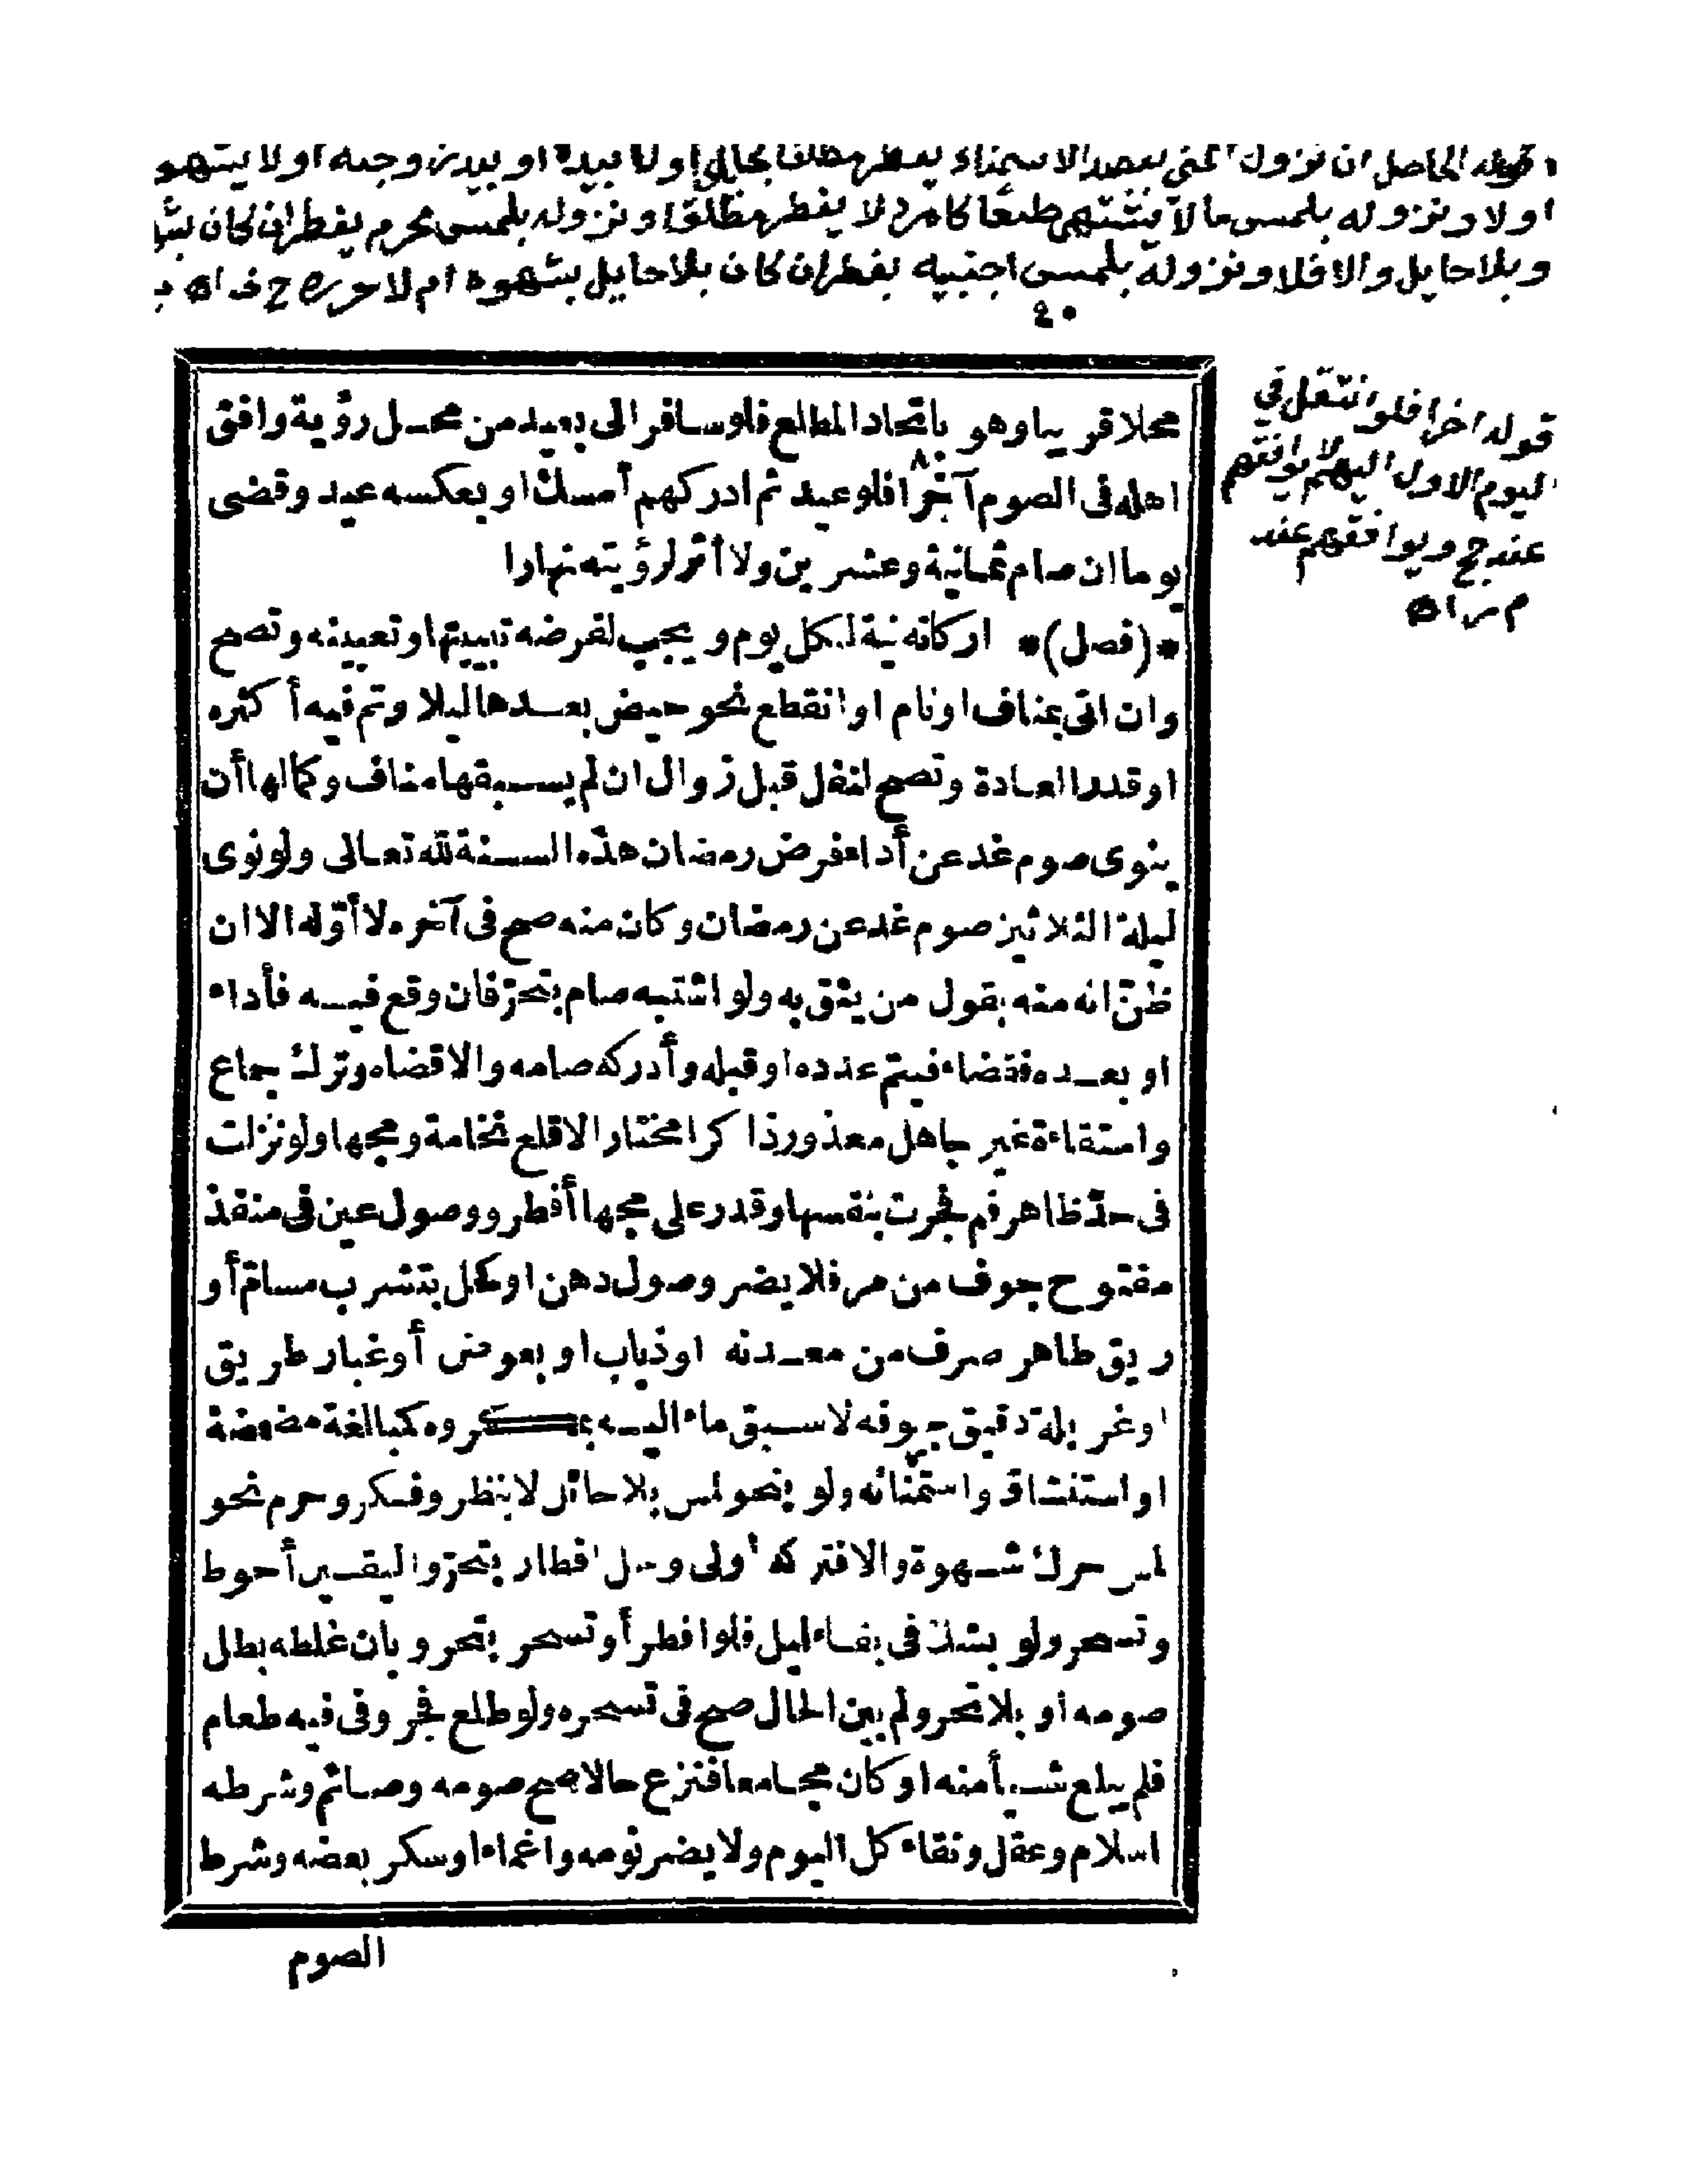 قوله الحاصل ان نزول المني بقصد الاستمناء يفطر مطلقا بحائل اولا بيده او بيد زوجته اولا بشهو
اولا ونزوله بلمس ما لا يشتهى طبعا كامرد لا يفطر مطلقا ونزوله بلمس محرم يفطر ان كان بشه
وبلا حايل والا فلا ونزوله بلمس اجنبيه يفطر ان كان بلا حايل بشهوة ام لا
٤٠
قوله اخرا فلو انتقل في
ليوم الاول اليهم لا يوافقهم
عند حج ويوافقهم عند
م ر اه
محلا قريبا وهو باتحاد المطلع فلو سافر الى بعيد من محل رؤية وافق
اهله فى الصوم آخرا فلو عيد ثم ادركهم أمسك او بعكسه عيد وقضى
يوما ان صام ثمانية وعشرين ولا أثر لرؤيته نهارا
*(فصل)* اركانه نية لكل يوم ويجب لفرضه تبييتها وتعيينه وتصح
وان اتى بمناف او نام او انقطع نحو حيض بعدها ليلا وتم فيه أكثره
او قدر العادة وتصح لنفل قبل زوال ان لم يسبقها مناف وكمالها أن
ينوى صوم غد عن أداء فرض رمضان هذه السنة لله تعالى ولو نوى
ليلة الثلاثين صوم غد عن رمضان وكان منه صح فى آخره لا أوّله الا ان
ظنّ انه منه بقول من يثق به ولو اشتبه صام بتحرّ فان وقع فيه فأداء
او بعده فقضاء فيتم عدده او قبله وأدركه صامه والا قضاه وترك جماع
واستقاءة غير جاهل معذور ذاكرا مختارا لا قلع نخامة ومجها ولو نزلت
فى حدّ ظاهر فم فجرت بنفسها وقدر على مجها أفطر ووصول عين فى منفذ
مفتوح جوف من مر فلا يضر وصول دهن او كحل بتشرب مسامّ أو
ريق طاهر صرف من معدنه او ذباب او بعوض أو غبار طريق
او غربلة دقيق جوفه لا سبق ماء اليه بمكروه كمبالغة مضمضة
او استنشاق واستمنائه ولو بنحو لمس بلا حائل لا بنظر وفكر وحرم نحو
لمس حرك شهوة والا فتركه أولى وحل افطار بتحرّ واليقين أحوط
وتسحر ولو بشك فى بقاء ليل فلو افطر أو تسحر بتحر وبان غلطه بطل
صومه او بلا تحر ولم يبن الحال صح فى تسحره ولو طلع فجر وفى فيه طعام
فلم يبلع شيأ منه او كان مجامعا فنزع حالا صح صومه وصائم وشرطه
اسلام وعقل ونقاء كل اليوم ولا يضر نومه واغماء او سكر بعضه وشرط
الصوم